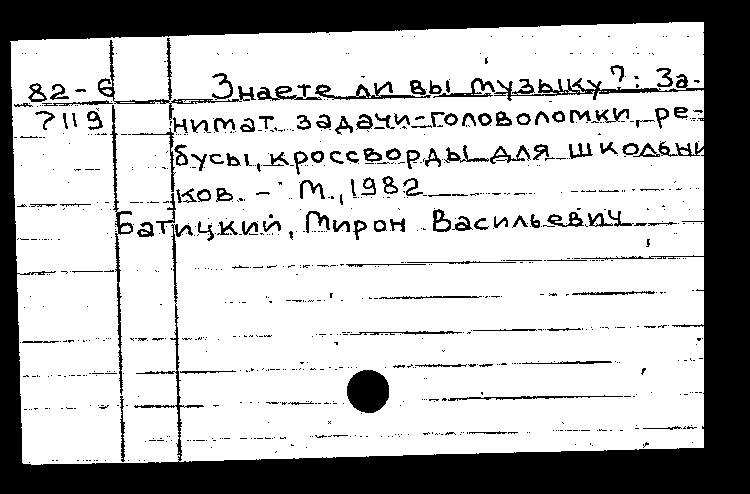 82-6 Знаете ли вы музыку?: За-
7119 нимат. задачи-головоломки, ре-
бусы, кроссворды для школьни
ков. - М., 1982
Батицкий, Мирон Васильевич